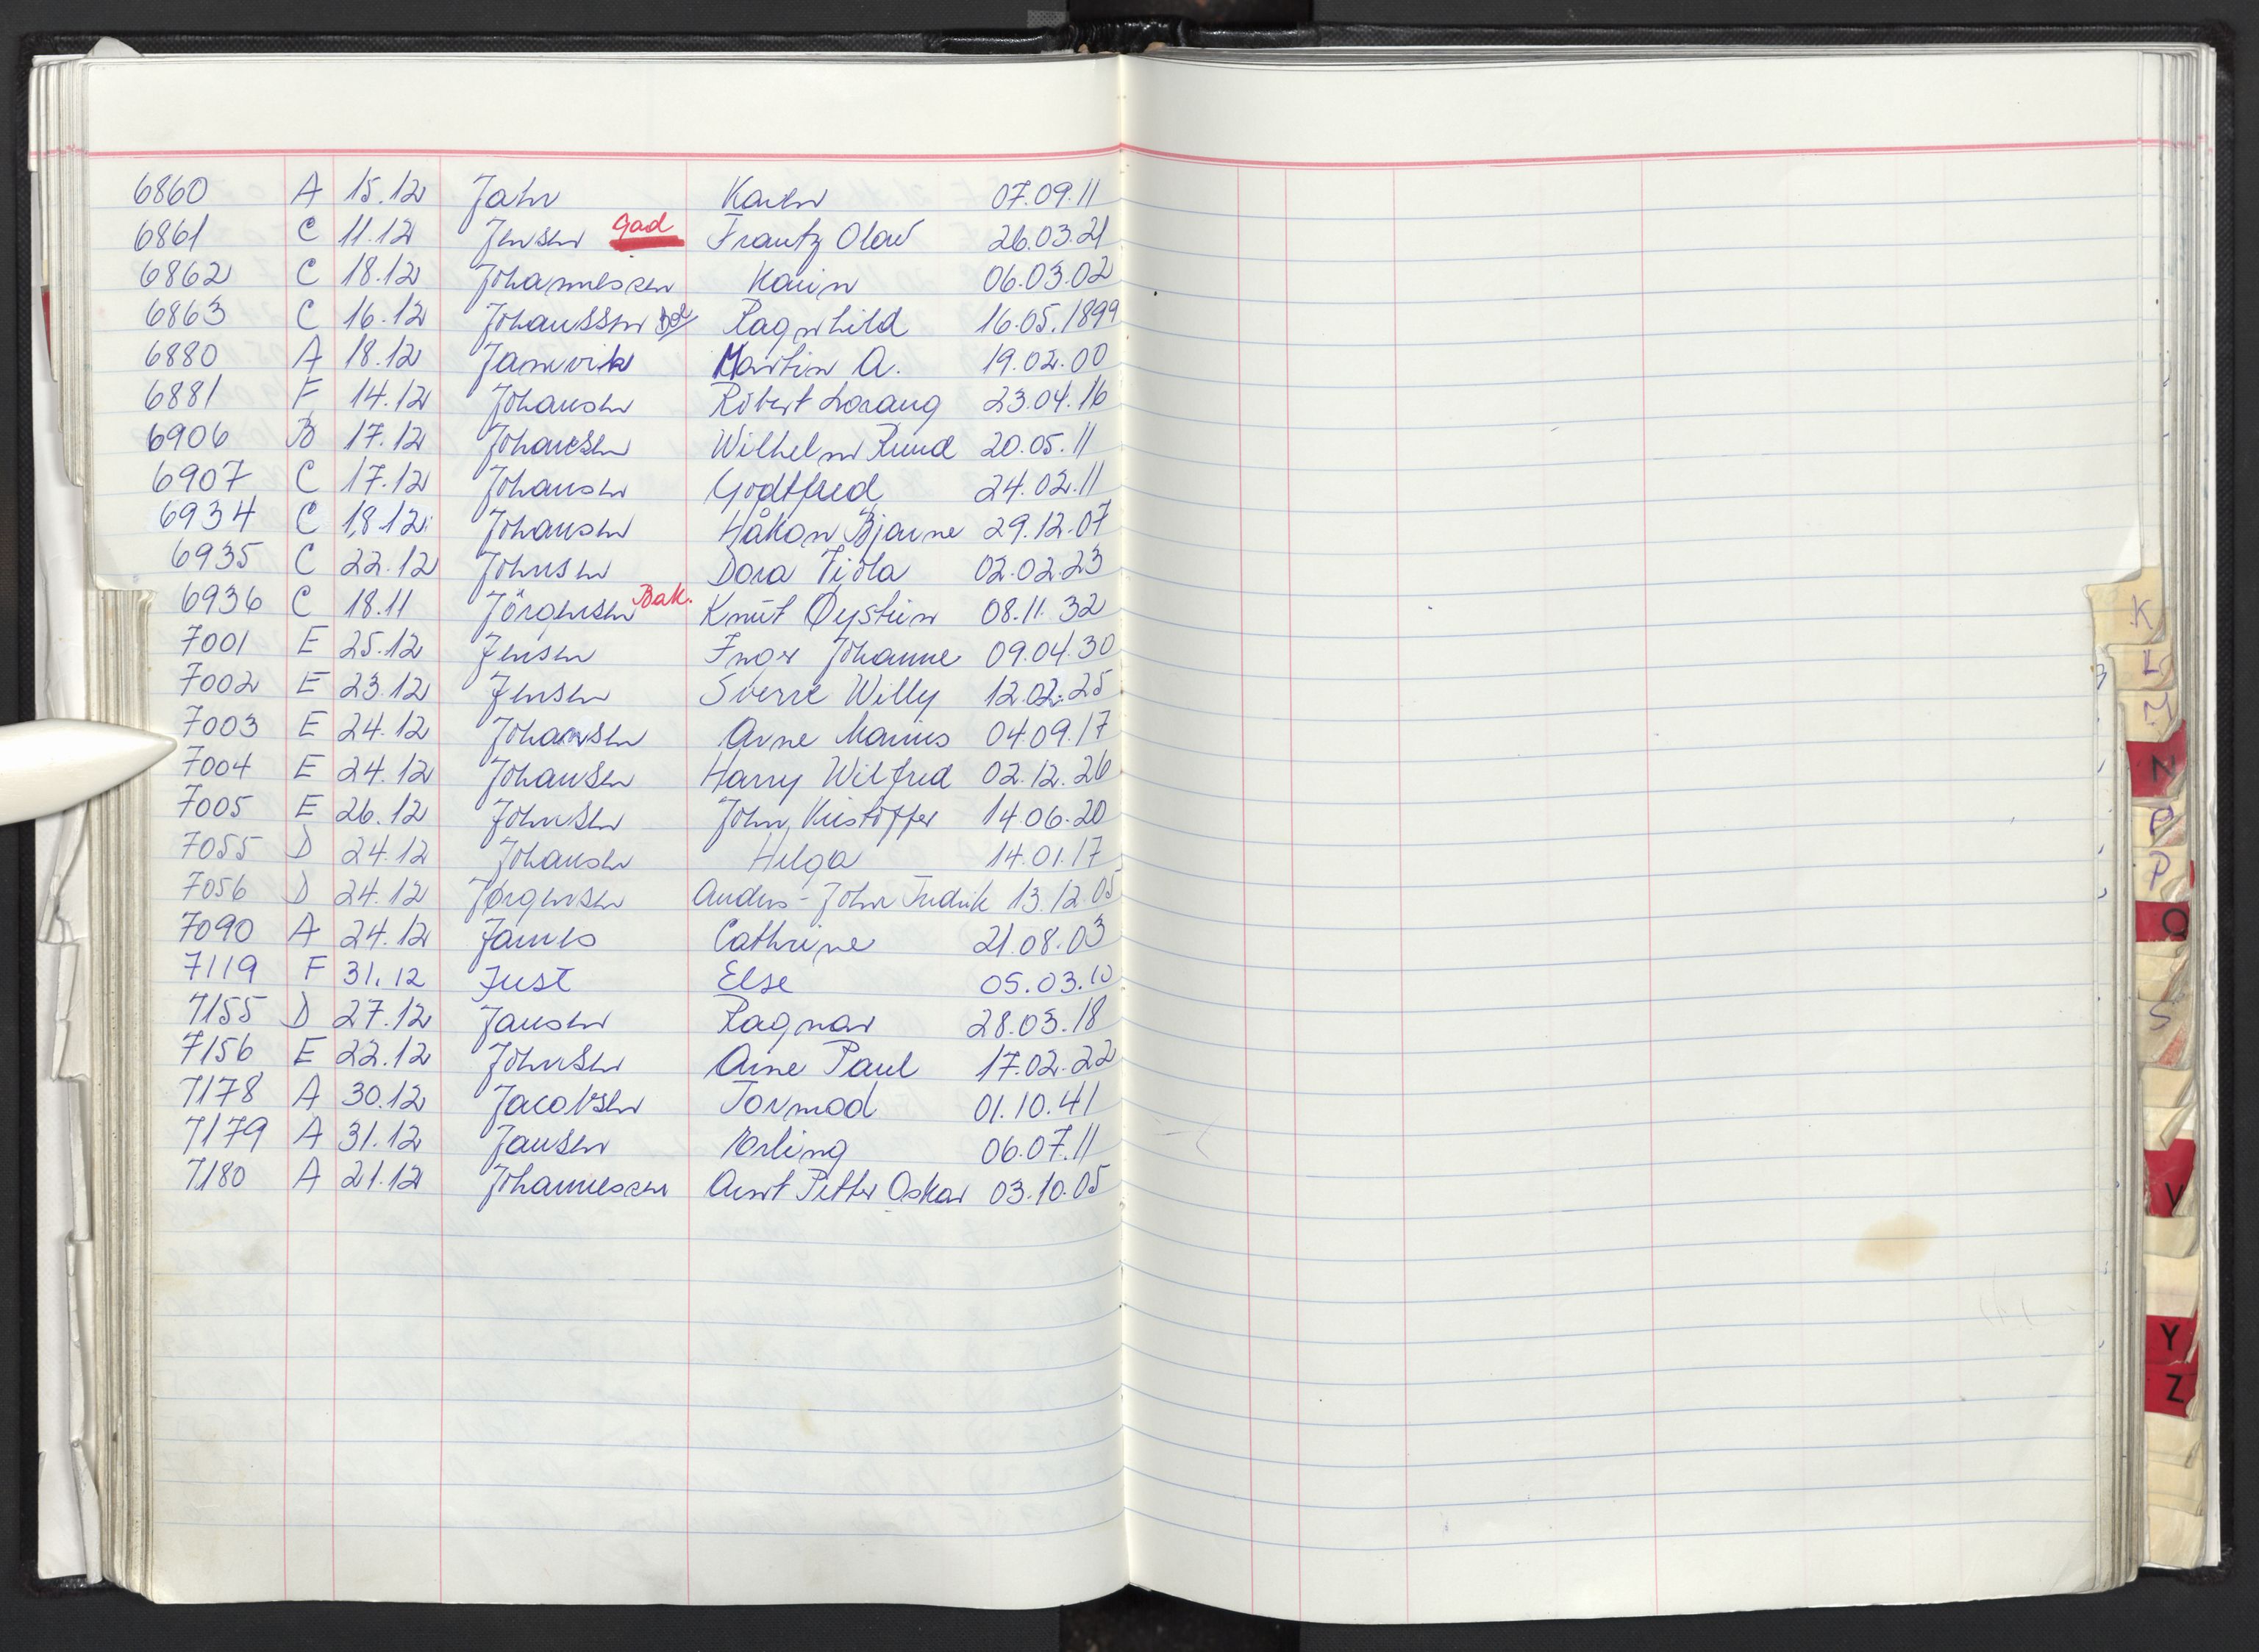 6860 A 15.12 Jahr Karen 07.09.11
6861 C 11.12 Jensen Gad Frantz Olav 26.03.21
6862 C 18.12 Johannessen Karin 06.03.02
6863 C 16.12 Johansson Ragnhild 16.05.1899
6880 A 18.12 Jamvik Martin A. 19.02.00
6881 F 14.12 Johansen Robert Lorang 23.04.16
6906 B 17.12 Johansen Wilhelm Ruud 20.05.11
6907 C 17.12 Johansen Godtfred 24.02.11
6934 C 18.12 Johansen Håkon Bjarne 29.12.07
6935 C 22.12 Johnsen Dora Fjola 02.02.23
6936 C 18.11 Jörgensen Bak. Knut Øystein 08.11.32
7001 E 25.12 Jensen Inger Johanne 09.04.30
7002 E 23.12 Jensen Sverre Willy 12.02.25
7003 E 24.12 Johansen Arne Marius 04.09.17
7004 E 24.12 Johansen Harry Wilfred 02.12.26
7005 E 26.12 Johnsen John Kristoffer 14.06.20
7055 D 24.12 Johansen Helga 14.01.17
7056 D 24.12 Jørgensen Anders-John Fredrik 13.12.05
7090 A 24.12 James Cathrine 21.08.03
7119 F 31.12 Just Else 05.03.10
7155 D 27.12 Jansen Ragnar 28.03.18
7156 E 22.12 Johnsen Arne Paul 17.02.22
7178 A 30.12 Jacobsen Tormod 01.10.41
7179 A 31.12 Jansen Erling 06.07.11
7180 A 21.12 Johannessen Arnt Petter Oskar 03.10.05
K
L
M
N
O
P
Q
S
V
Y
Z